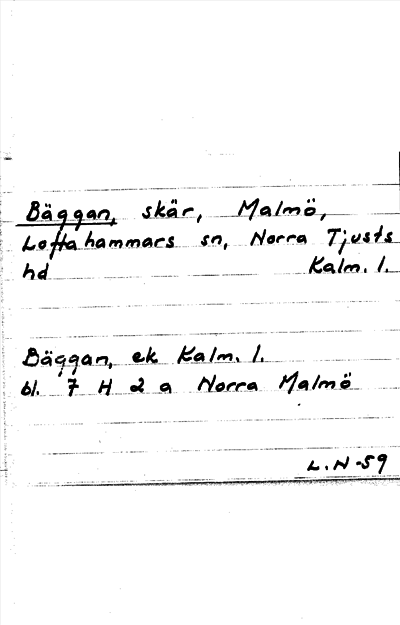 Bäggan, skär, Malmö,
Loftahammars sn, Norra Tjusts
hd Kalm. l.
Bäggan, ek Kalm. l.
bl. 7 H 2 a Norra Malmö
L.N-59